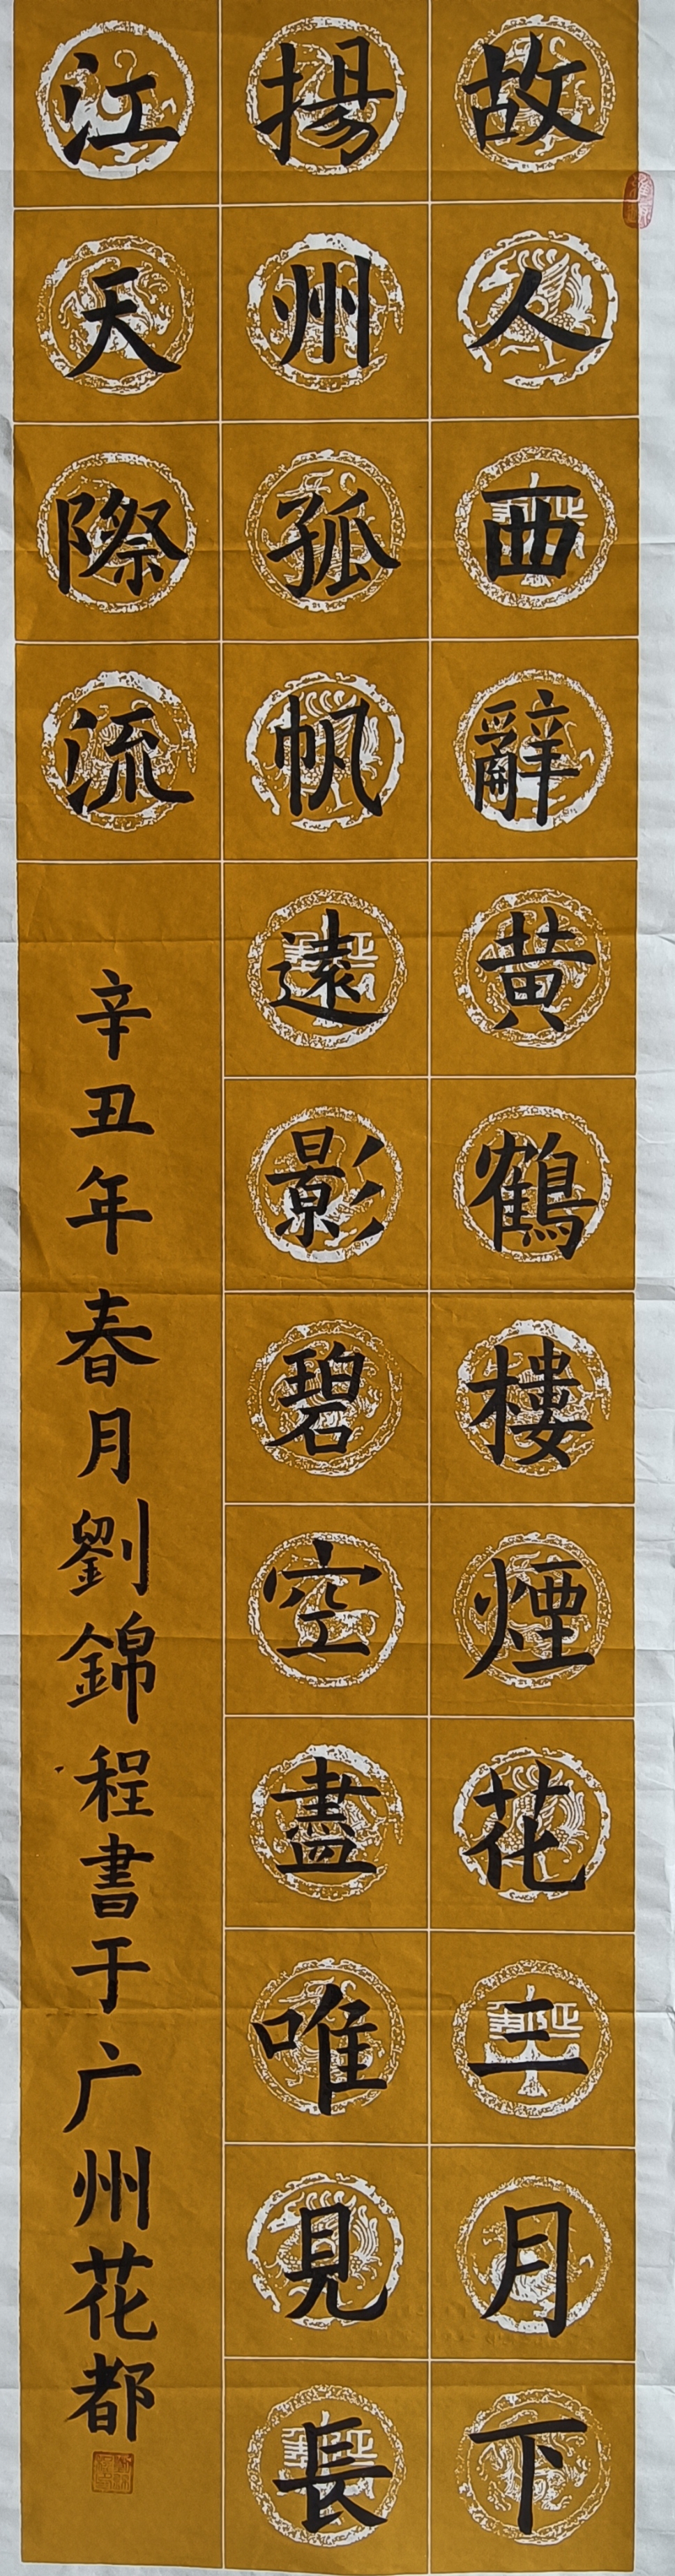 故人西辭黄鶴樓煙花三月下
揚州孤帆遠影碧空盡唯見長
江天際流
辛丑年春月劉錦程書于广州花都